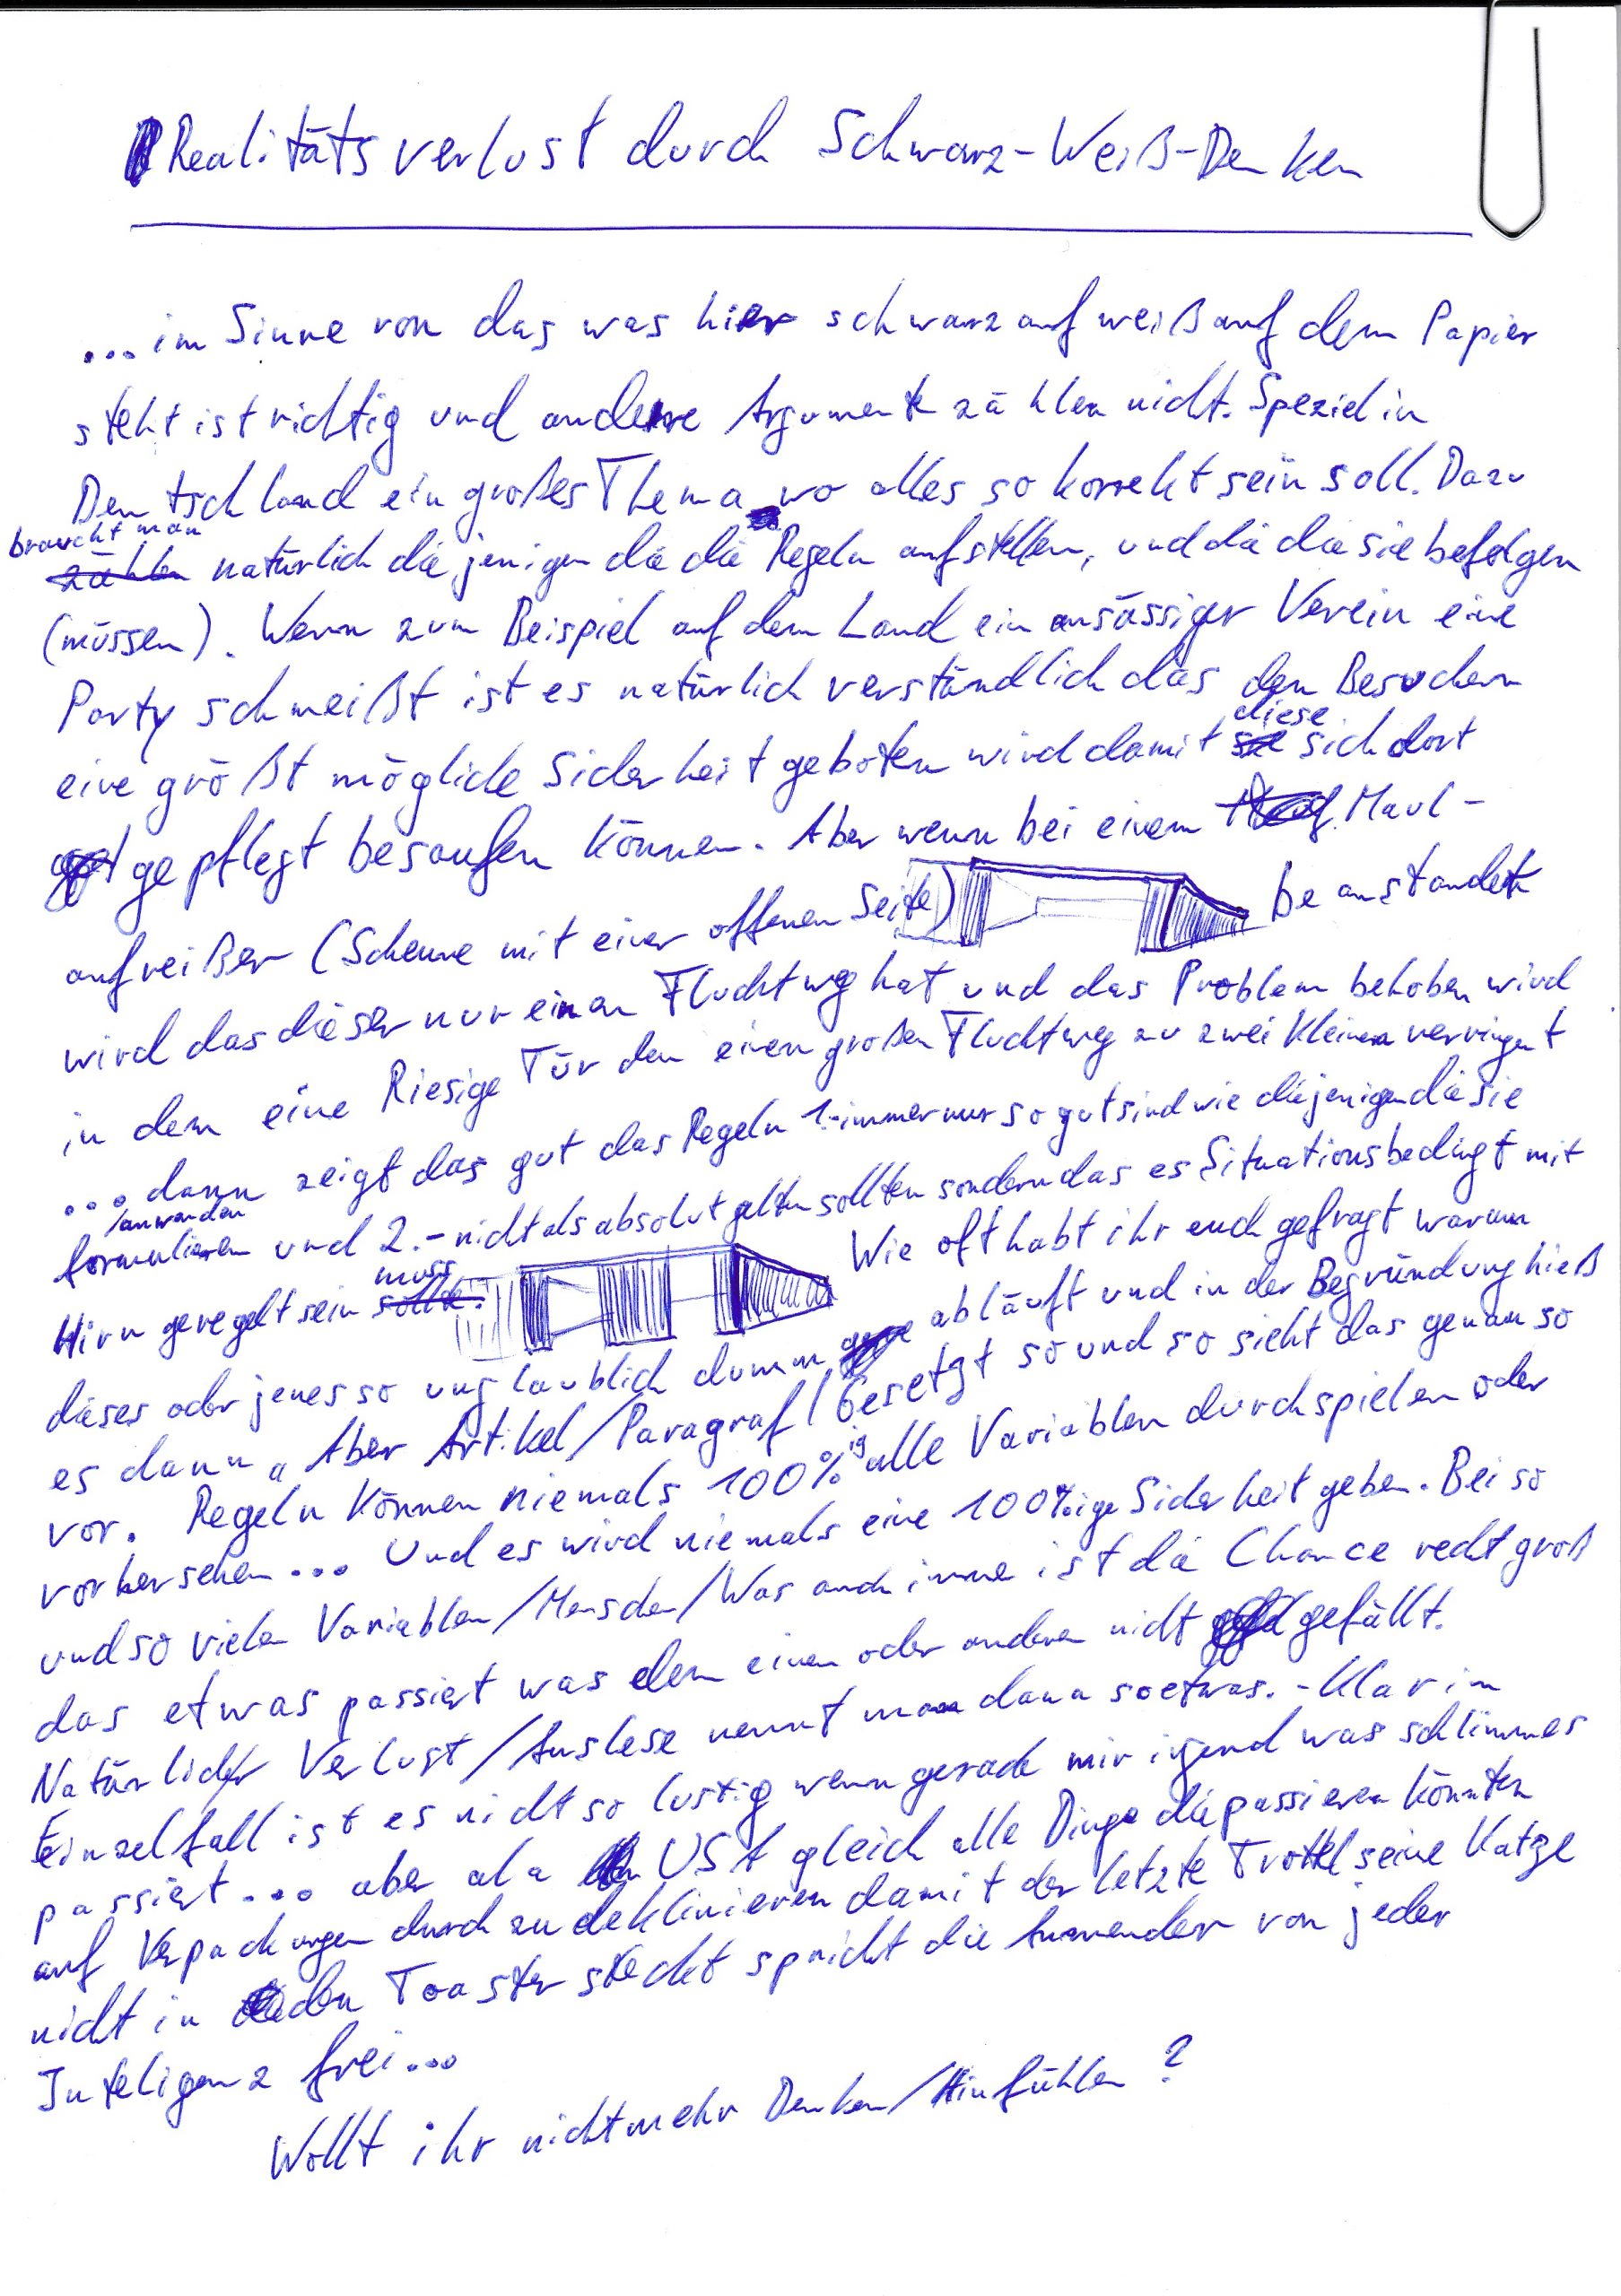 Realitätsverlust durch Schwarz-Weiß-Denken
...im Sinne von das was hier schwarz auf weiß auf dem Papier
steht ist richtig und andere Argumente zählen nicht. Speziel in
Deutschland ein großes Thema wo alles so korrekt sein soll. Dazu
braucht man
zählen natürlich diejenigen die die Regeln aufstellen, und die die sie befolgen
(müssen). Wenn zum Beispiel auf dem Land ein ansässiger Verein eine
Party schmeißt ist es natürlich verständlich das den Besuchern
diese
eine größt mögliche Sicherheit geboten wird damit sie sich dort
gepflegt besaufen können. Aber wenn bei einem Maul-
aufreißer (Scheune mit einer offenen Seite) beanstandet
wird das dieser nur einen Fluchtweg hat und das Problem behoben wird
in dem eine Riesige Tür den einen großen Fluchtweg zu zwei kleinen verringert
...dann zeigt das gut das Regeln 1.-immer nur so gut sind wie diejenigen die sie
/anwenden
formulieren und 2.-nicht als absolut gelten sollten sondern das es Situationsbedingt mit
muss
Hirn geregelt sein sollte. Wie oft habt ihr euch gefragt warum
dieses oder jenes so unglaublich dumm abläuft und in der Begründung hieß
es dann „Aber Artikel/Paragraf/Gesetzt so und so sieht das genau so
vor. Regeln können niemals 100%ig alle Variablen durchspielen oder
vorhersehen... Und es wird niemals eine 100%ige Sicherheit geben. Bei so
und so vielen Variablen/Menschen/Was auch immer ist die Chance recht groß
das etwas passiert was dem einen oder anderen nicht gefällt.
Natürlicher Verlust/Auslese nennt man dann soetwas. -Klar im
Einzelfall ist es nicht so lustig wenn gerade mir irgend was schlimmes
passiert... aber ala USA gleich alle Dinge die passieren könnten
auf Verpackungen durch zu deklinieren damit der letzte Trottel seine Katze
nicht in den Toaster steckt spricht die Anwender von jeder
Inteligenz frei...
Wollt ihr nicht mehr Denken/Hinfühlen?